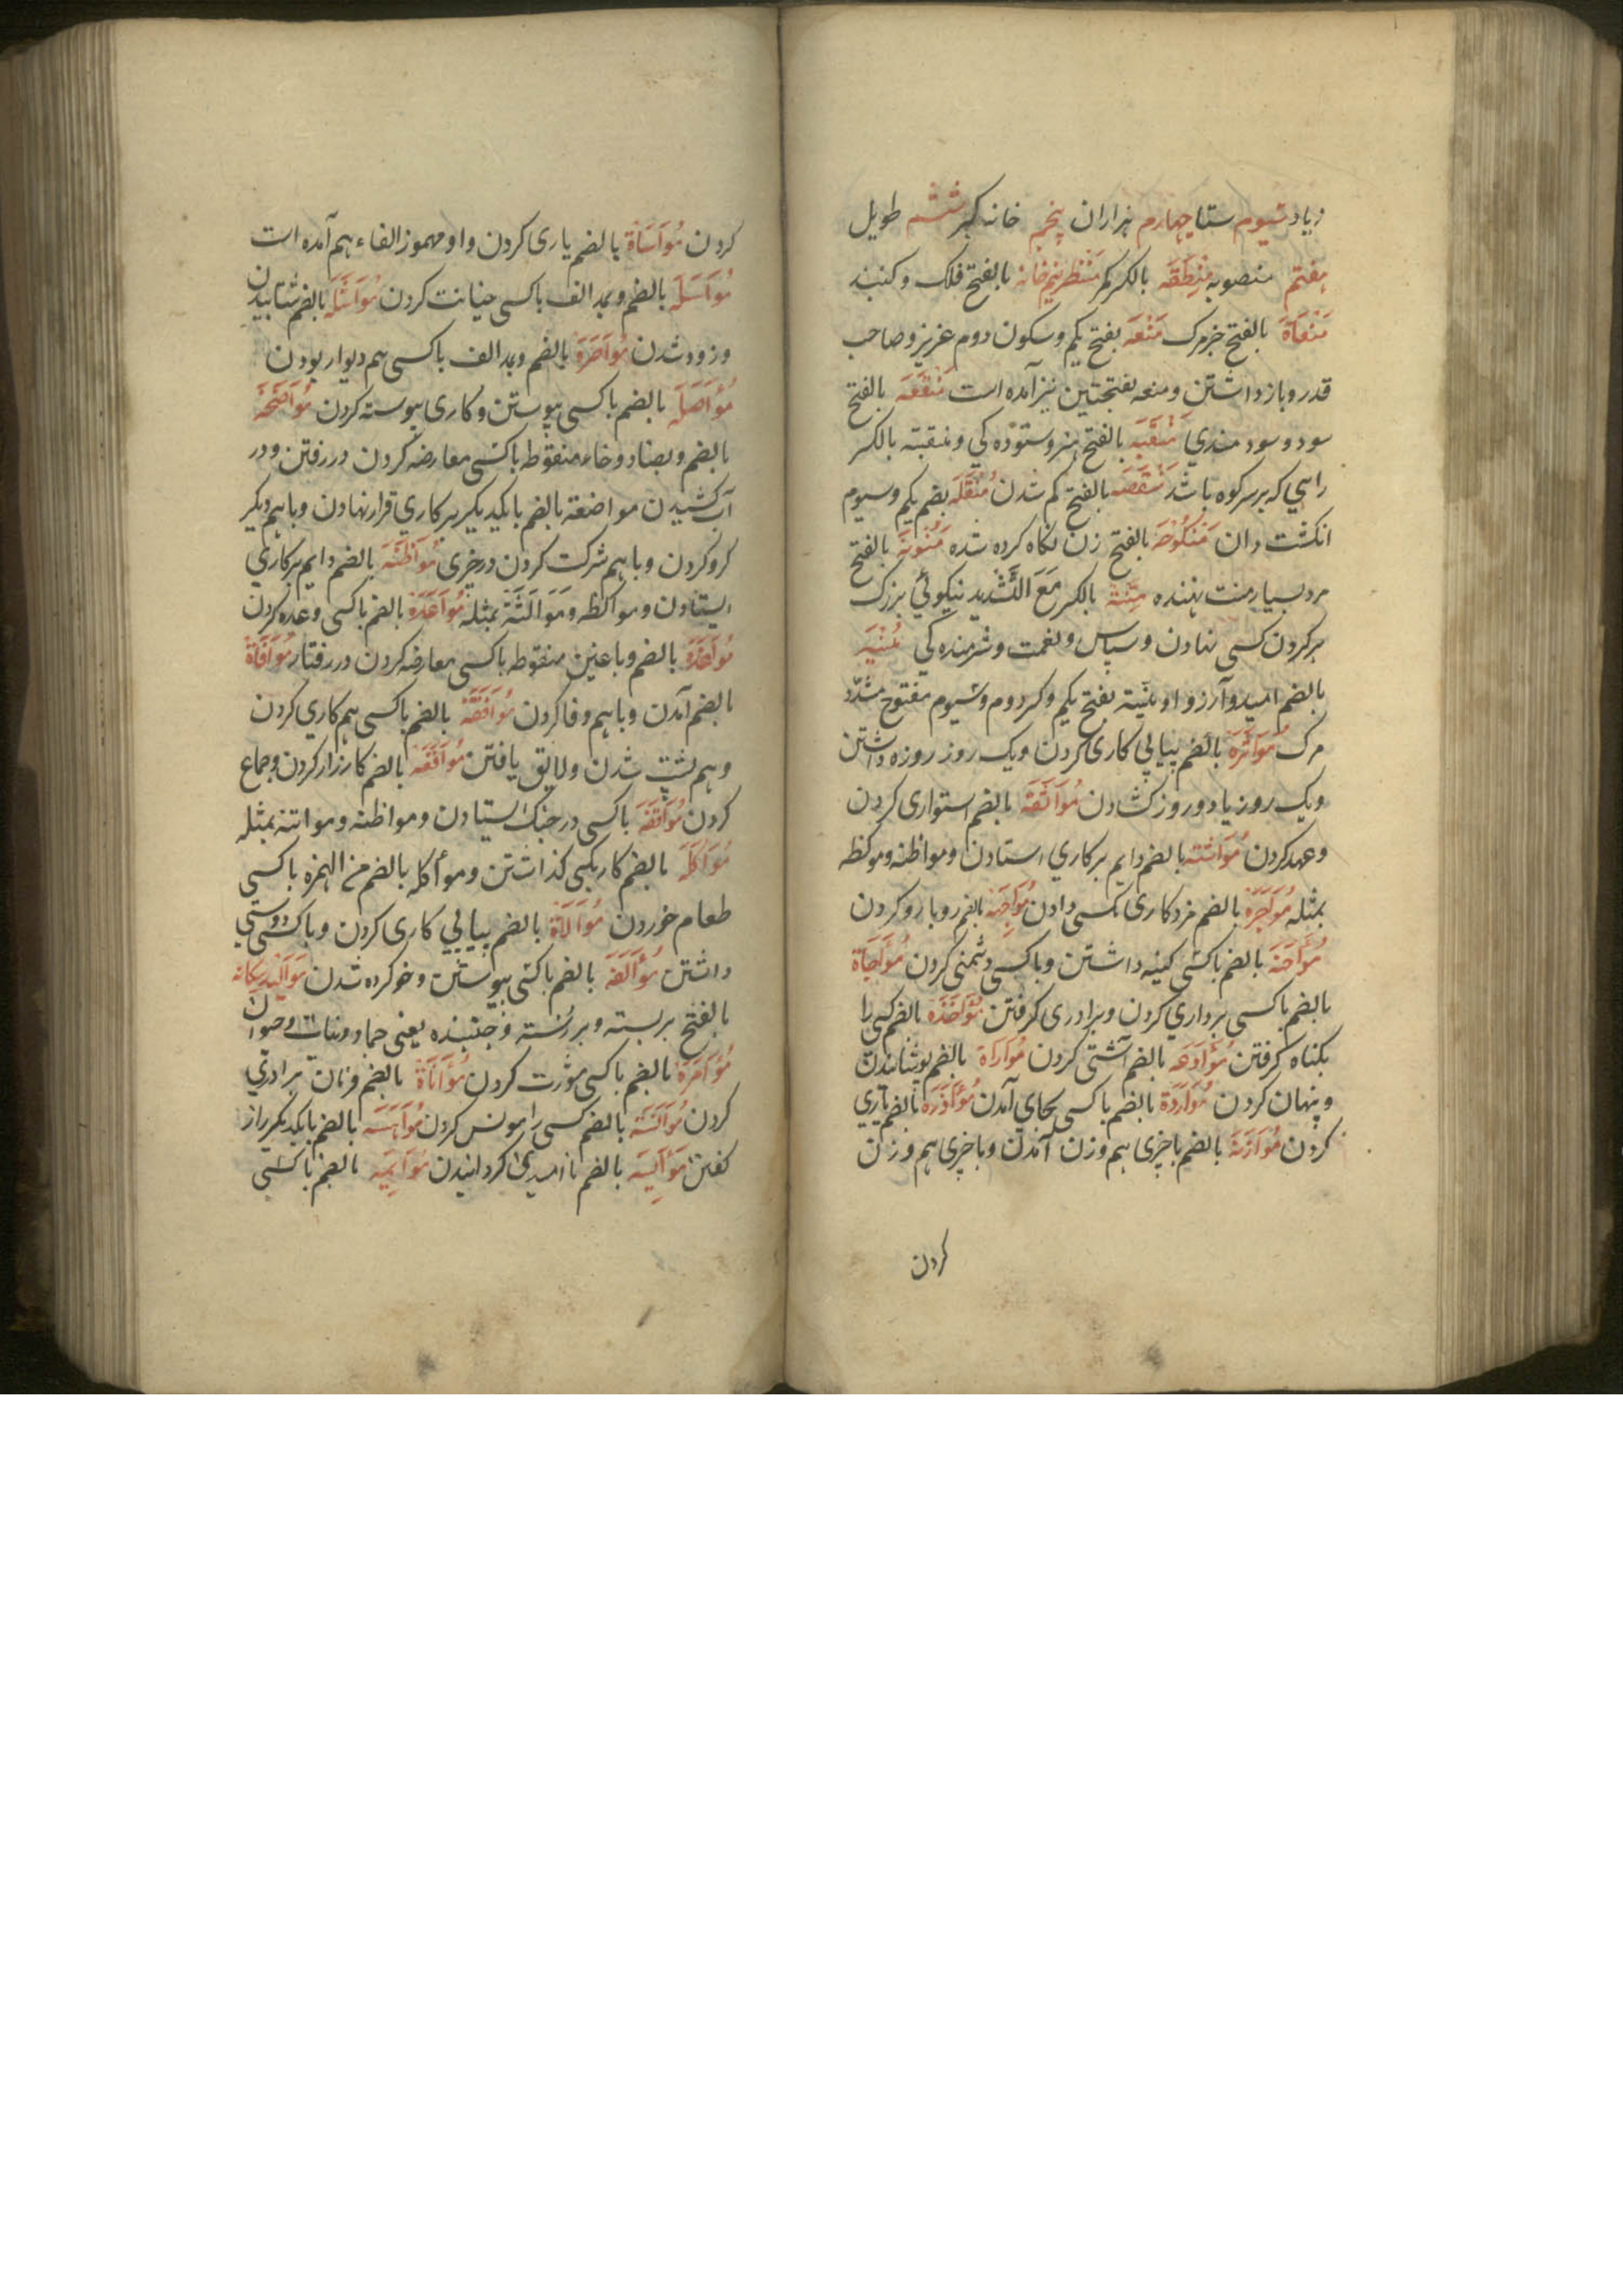 زیاد سیوم ستا چهارم هزاران پنجم خانه کبر ششم طویل
هفتم منصوبه مِنْطَقَه بالکسر کمر مَنْظَر نیم خانه بالفتح فلک و کنبد
مَنْعَاة بالفتح خبر مرک مَنْعَه بفتح یکم و سکون دوم عزیز و صاحب
قدر و باز داشتن و منعه بفتحتین نیز آمده است مَنْفَعَه بالفتح
سود و سودمندی مَنْقَبَه بالفتح هنر و ستوده کی و منقبته بالکسر
راهی که بر سر کوه باشد مَنْقَصَه بالفتح کم شدن مُنْقُلَه بضم یکم و سیوم
انکشت دان مَنْکُوْحَه بالفتح زن نکاه کرده شده مَنُوْنَه بالفتح
مرد بسیار منت نهنده مِنَّة بالکسر مَعَ التَّشْدید نیکوئی بزرک
بر کردن کسی نهادن و سپاس و نعمت و شرمنده کی مُنْیَه
بالضم امید و آرزو و منیة بفتح یکم و کسر دوم و سیوم مفتوح مشدّد
مرک مُوَاتَرَة بالضم پیاپی کاری کردن و یک روز روزه داشتن
و یک روز یا دو روز کشادن مُوَاثَقَة بالضم استواری کردن
و عهد کردن مُوَاتَنَه بالضم دایم بر کاری استادن و مواظبه و موکظه
بمثله مُوَاجَرَة بالضم مزد کاری بکسی دادن مُوَاجَهَه بالضم رو با رو کردن
مُؤَاحَنَة بالضم با کسی کینه داشتن و با کسی دشمنی کردن مُؤَاخَاة
بالضم با کسی برداری کردن و برادری کرفتن مُؤَاخَذَة بالضم کسی را
بکناه کرفتن مُوَادَعَه بالضم آشتی کردن مُوَارَاة بالضم پوشانیدن
و پنهان کردن مُوَارَدَة بالضم با کسی بجای آمدن مُؤَازَرَة بالضم یاری
کردن مُوَازَنَة بالضم با چیزی هم وزن آمدن و با چیزی هم وزن
کردن
کردن مُوَاسَاة بالضم یاری کردن واو و مهموز الفاء هم آمده است
مُوَاسَلَه بالضم و بمد الف با کسی خیانت کردن مُوَاشَلَه بالضم شتابیدن
و زود شدن مُوَاصَرَة بالضم و بمد الف با کسی هم دیوار بودن
مُوَاصَلَه بالضم با کسی پیوستن و کاری پیوسته کردن مُوَاضَخَه
بالضم و بضاد و خاء منقوطه با کسی معارضه کردن در رفتن و در
آب کشیدن مواضعة بالضم با یکدیکر بر کاری قرار نهادن و با هم دیکر
کرو کردن و با هم شرکت کردن در چیزی مُوَاظَبَة بالضم دایم بر کاری
ایستادن و مواکظه و مَوَالَثَة بمثله مُوَاعَدَة بالضم با کسی وعده کردن
مُوَاغَدَة بالضم و با غین منقوطه با کسی معارضه کردن در رفتار مُوَافَاة
بالضم آمدن و با هم وفا کردن مُوَافَقَة بالضم با کسی هم کاری کردن
و هم پشت شدن و لایق یافتن مُوَاقَعَه بالضم کارزار کردن و جماع
کردن مُوَاقَفَه با کسی در جنک ایستادن و مواظبه و مواتنه بمثله
مُوَاکَلَه بالضم کار بکسی کذاشتن و موأکله بالضم من الهمزه با کسی
طعام خوردن مُوَالَاة بالضم پیاپی کاری کردن و با کسی دوستی
داشتن مُؤَالَفَه بالضم با کسی پیوستن و خو کرده شدن مَوَالِید سه کانه
بالفتح بربسته و بررسته و جنبنده یعنی جماد و نبات و حیوان
مُؤَامَرَة بالضم با کسی مشورت کردن مُؤَانَاة بالضم و نان برادری
کردن مُوَانَسَة بالضم کسی را مونس کردن مُوَاهَسَه بالضم با یکدیکر راز
کفتن مُؤَایَسَه بالضم نا امید کردانیدن مُوَایَمَه بالضم با کسی